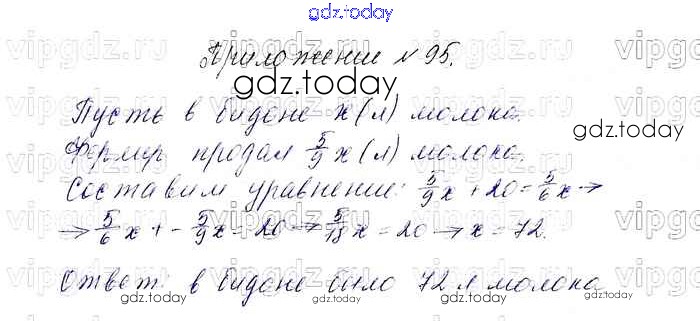 gdz.today
Приложение №95.
gdz.today
Пусть в бидоне x(л) молока.
gdz.today
Фермер продал 5/9 x(л) молока.
Составим уравнение: 5/9 x + 20 = 5/6 x →
→ 5/6 x + - 5/9 x = 20 → 5/18 x = 20 → x = 72.
Ответ: в бидоне было 72 л молока
gdz.today gdz.today gdz.today